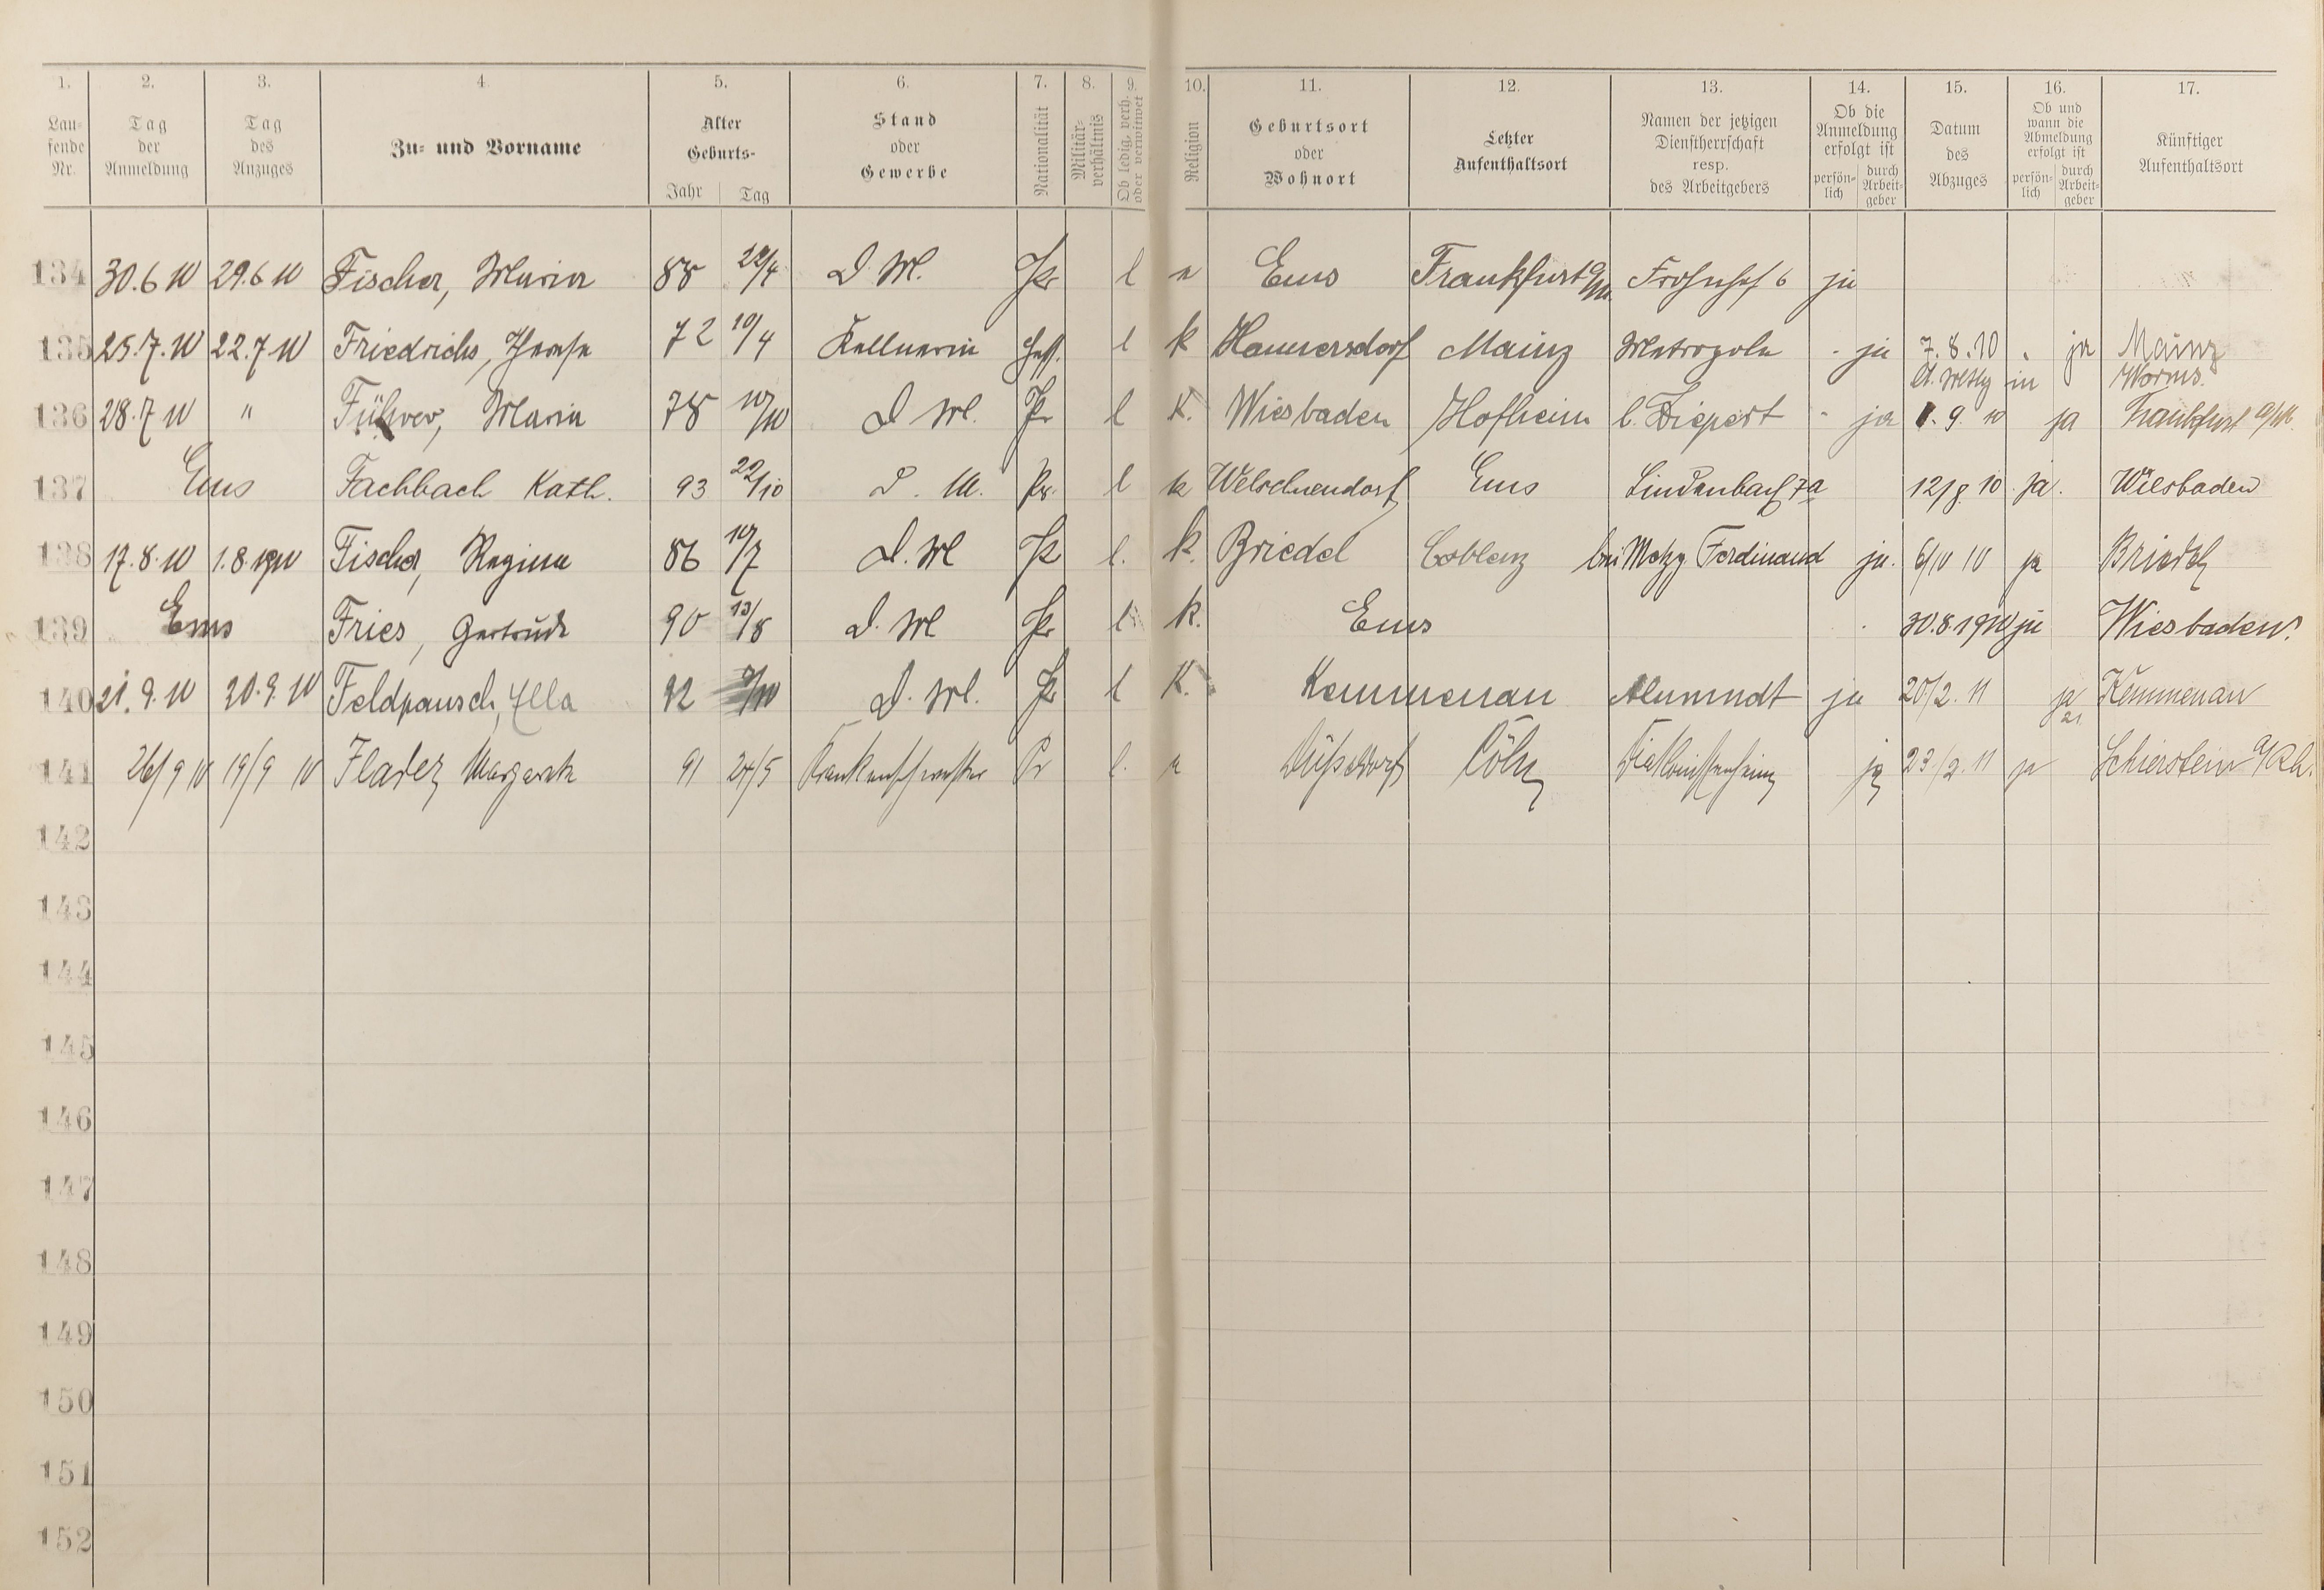 1. 2. 3. 4. 5. 6. 7. 8. 9. 10. 11. 12. 13. 14. 15. 16. 17.
Laufende Nr. Tag der Anmeldung Tag des Anzuges Zu- und Vorname Alter Geburts- Jahr Tag Stand oder Gewerbe Nationalität Militär-verhältnis Ob ledig, verh. oder verwitwet Religion Geburtsort oder Wohnort Letzter Aufenthaltsort Namen der jetzigen Dienstherrschaft resp. des Arbeitgebers Ob die Anmeldung erfolgt ist persön-lich durch Arbeit-geber Datum des Abzuges Ob und wann die Abmeldung erfolgt ist persön-lich durch Arbeit-geber Künftiger Aufenthaltsort
134 30.6 10 29.6 10 Fischer, Maria 88 22/4 D. M. Pr l Ems Frankfurt a/M. Frohnhof 6 ja
135 25.7.10 22.7.10 Friedrichs, 72 10/4 Kellnerin Hess. l k Mainz Metropole - ja 7.8.10 ja Mainz
Worms.
136 28.7 10 " Führer, Maria 78 10/10 D. M. Pr l K. Wiesbaden Hofheim - ja 1. 9. 10 ja Frankfurt a/M.
137 Ems Fachbach Kath. 93 22/10 D. M. Pr. l k Welschneudorf Ems Lindenbach 7a 12/8 10 ja. Wiesbaden
138 17.8.10 1.8.1910 Fischer, Regina 86 10/7 D. M Pr l. k. Briedel Coblenz bei Metzg. Ferdinand ja. 6/10 10 ja Briedel
139 Ems Fries, Gertrude 90 13/8 D. M Pr l k. Ems 30.8.1910 ja Wiesbaden.
140 21.9.10 20.9.10 Feldpausch, Ella 92 D. M. Pr l K. Kemmenau ja 20/2. 11 ja Kemmenau
141 26/9 10 19/9 10 Margarete 91 24/5 Krankenschwester Pr l. Düsseldorf Cöln Diakonissenheim ja 23/2. 11 ja Schierstein a/Rh.
142
143
144
145
146
147
148
149
150
151
152